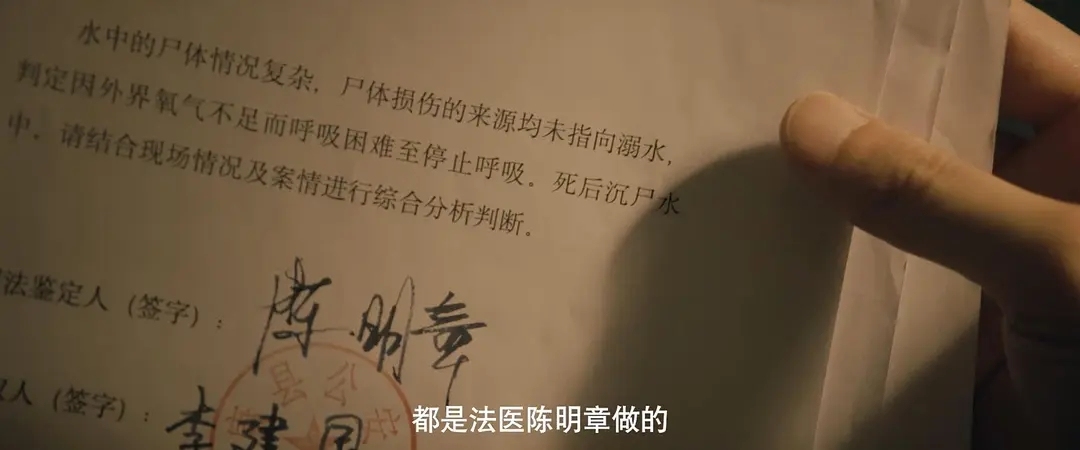 水中的尸体情况复杂，尸体损伤的来源均未指向溺水，
判定因外界氧气不足而呼吸困难至停止呼吸。死后沉尸水
中。请结合现场情况及案情进行综合分析判断。
法鉴定人（签字）：陈明章
人（签字）：李建国
县公
都是法医陈明章做的